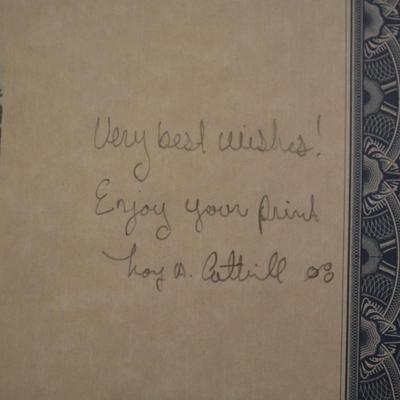 Very best wishes!
Enjoy your print
Loy A. Cottrill